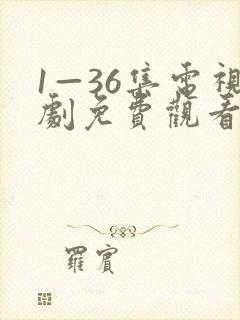 1—36集電視
劇免費觀看
羅賓